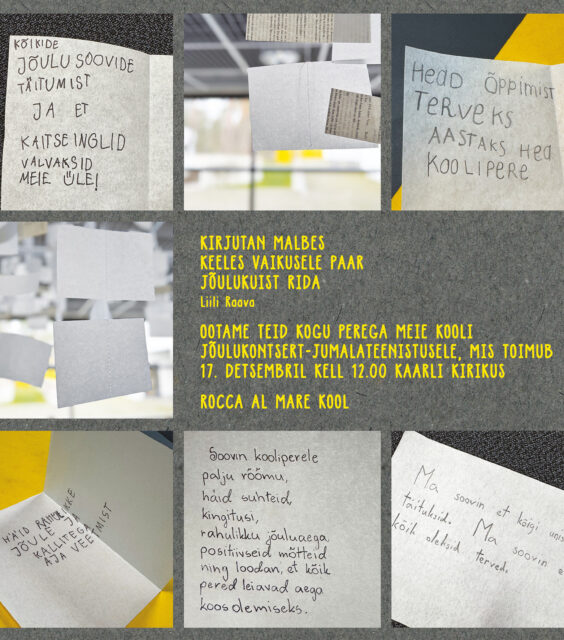 KÕIKIDE
JÕULU SOOVIDE
TÄITUMIST
JA ET
KAITSEINGLID
VALVAKSID
MEIE ÜLE!
HEAD ÕPPIMIST
TERVEKS
AASTAKS HEA
KOOLIPERE
KIRJUTAN MALBES
KEELES VAIKUSELE PAAR
JÕULUKUIST RIDA
Liili Raava
OOTAME TEID KOGU PEREGA MEIE KOOLI
JÕULUKONTSERT-JUMALATEENISTUSELE, MIS TOIMUB
17. DETSEMBRIL KELL 12.00 KAARLI KIRIKUS
ROCCA AL MARE KOOL
HÄID
JÕULE JA
KALLITEGA
AJA VEETMIST
Soovin kooliperele
palju rõõmu,
häid suhteid,
kingitusi,
rahulikku jõuluaega
positiivseid mõtteid
ning loodan, et kõik
pered leiavad aega
koos olemiseks.
Ma soovin et kõigi
täituksid. Ma soovin
kõik oleksid terved.